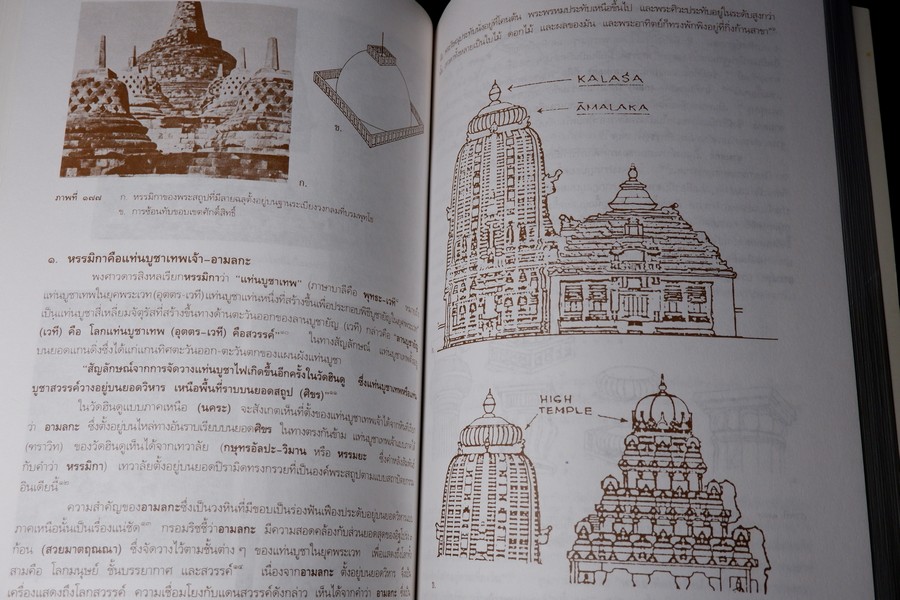 ก.
ข.
ภาพที่ ๑๗๗ ก. หรรมิกาของพระสถูปที่มีลายฉลุตั้งอยู่บนฐานระเบียงวงกลมที่บรมพุทโธ
ข. การซ้อนทับขอบเขตศักดิ์สิทธิ์
๑. หรรมิกาคือแท่นบูชาเทพเจ้า-อามลกะ
พงศาวดารสิงหลเรียกหรรมิกาว่า "แท่นบูชาเทพ" (ภาษาบาลีคือ พุทธะ-เวที)
แท่นบูชาเทพในยุคพระเวท (อุตตร-เวที) แท่นบูชาแท่นหนึ่งที่สร้างขึ้นเพื่อประกอบพิธีบูชายัญในยุคพระเวท
เป็นแท่นบูชาสี่เหลี่ยมจัตุรัสที่สร้างขึ้นทางด้านตะวันออกของลานบูชายัญ (เวที) กล่าวคือ
(เวที) คือ โลกแท่นบูชาเทพ (อุตตร-เวที) คือสวรรค์ ในทางสัญลักษณ์
บนยอดแกนดิ่งซึ่งได้แก่แกนทิศตะวันออก-ตะวันตกของแผนผังแท่นบูชา
"สัญลักษณ์จากการจัดวางแท่นบูชาไฟเกิดขึ้นอีกครั้งในวัดฮินดู ซึ่งแท่นบูชาเทพ
บูชาสวรรค์วางอยู่บนยอดวิหาร เหนือพื้นที่ราบบนยอดสถูป (ศิขร)"
ในวัดฮินดูแบบภาคเหนือ (นคระ) จะสังเกตเห็นที่ตั้งของแท่นบูชาเทพเจ้าได้จาก
ว่า อามลกะ ซึ่งตั้งอยู่บนไหล่ทางอันราบเรียบบนยอดศิขร ในทางตรงกันข้าม แท่นบูชาเทพเจ้า
(ทราวิท) ของวัดฮินดูเห็นได้จากเทวาลัย (กษุทรอัลปะ-วิมาน หรือ หรรมยะ
กับคำว่า หรรมิกา) เทวาลัยตั้งอยู่บนยอดปิรามิดทรงกรวยที่เป็นองค์พระสถูปตามแบบสถาปัตยกรรม
อินเดียใต้
ความสำคัญของอามลกะซึ่งเป็นวงหินที่มีขอบเป็นร่องฟันเฟืองประดับอยู่บนยอดวิหาร
ภาคเหนือนั้นเป็นเรื่องแน่ชัด กรอมริชชี้ว่าอามลกะ มีความสอดคล้องกับส่วนยอดสุดของ
ก้อน (สวยมาตฤณณา) ซึ่งจัดวางไว้ตามชั้นต่าง ๆ ของแท่นบูชาในยุคพระเวท
สามคือ โลกมนุษย์ ชั้นบรรยากาศ และสวรรค์ เนื่องจากอามลกะ ตั้งอยู่บนยอดวิหาร
เครื่องแสดงถึงโลกสวรรค์ ความเชื่อมโยงกับแดนสวรรค์ดังกล่าว เห็นได้จากคำว่า อามลกะ
พระพรหมประทับเหนือขึ้นไป และพระศิวะประทับอยู่ในระดับสูงกว่า
เป็นใบไม้ ดอกไม้ และผลของมัน และพระอาทิตย์ก็ทรงพักพิงอยู่ที่กิ่งก้านสาขา"
KALAŚA
ĀMALAKA
HIGH
TEMPLE